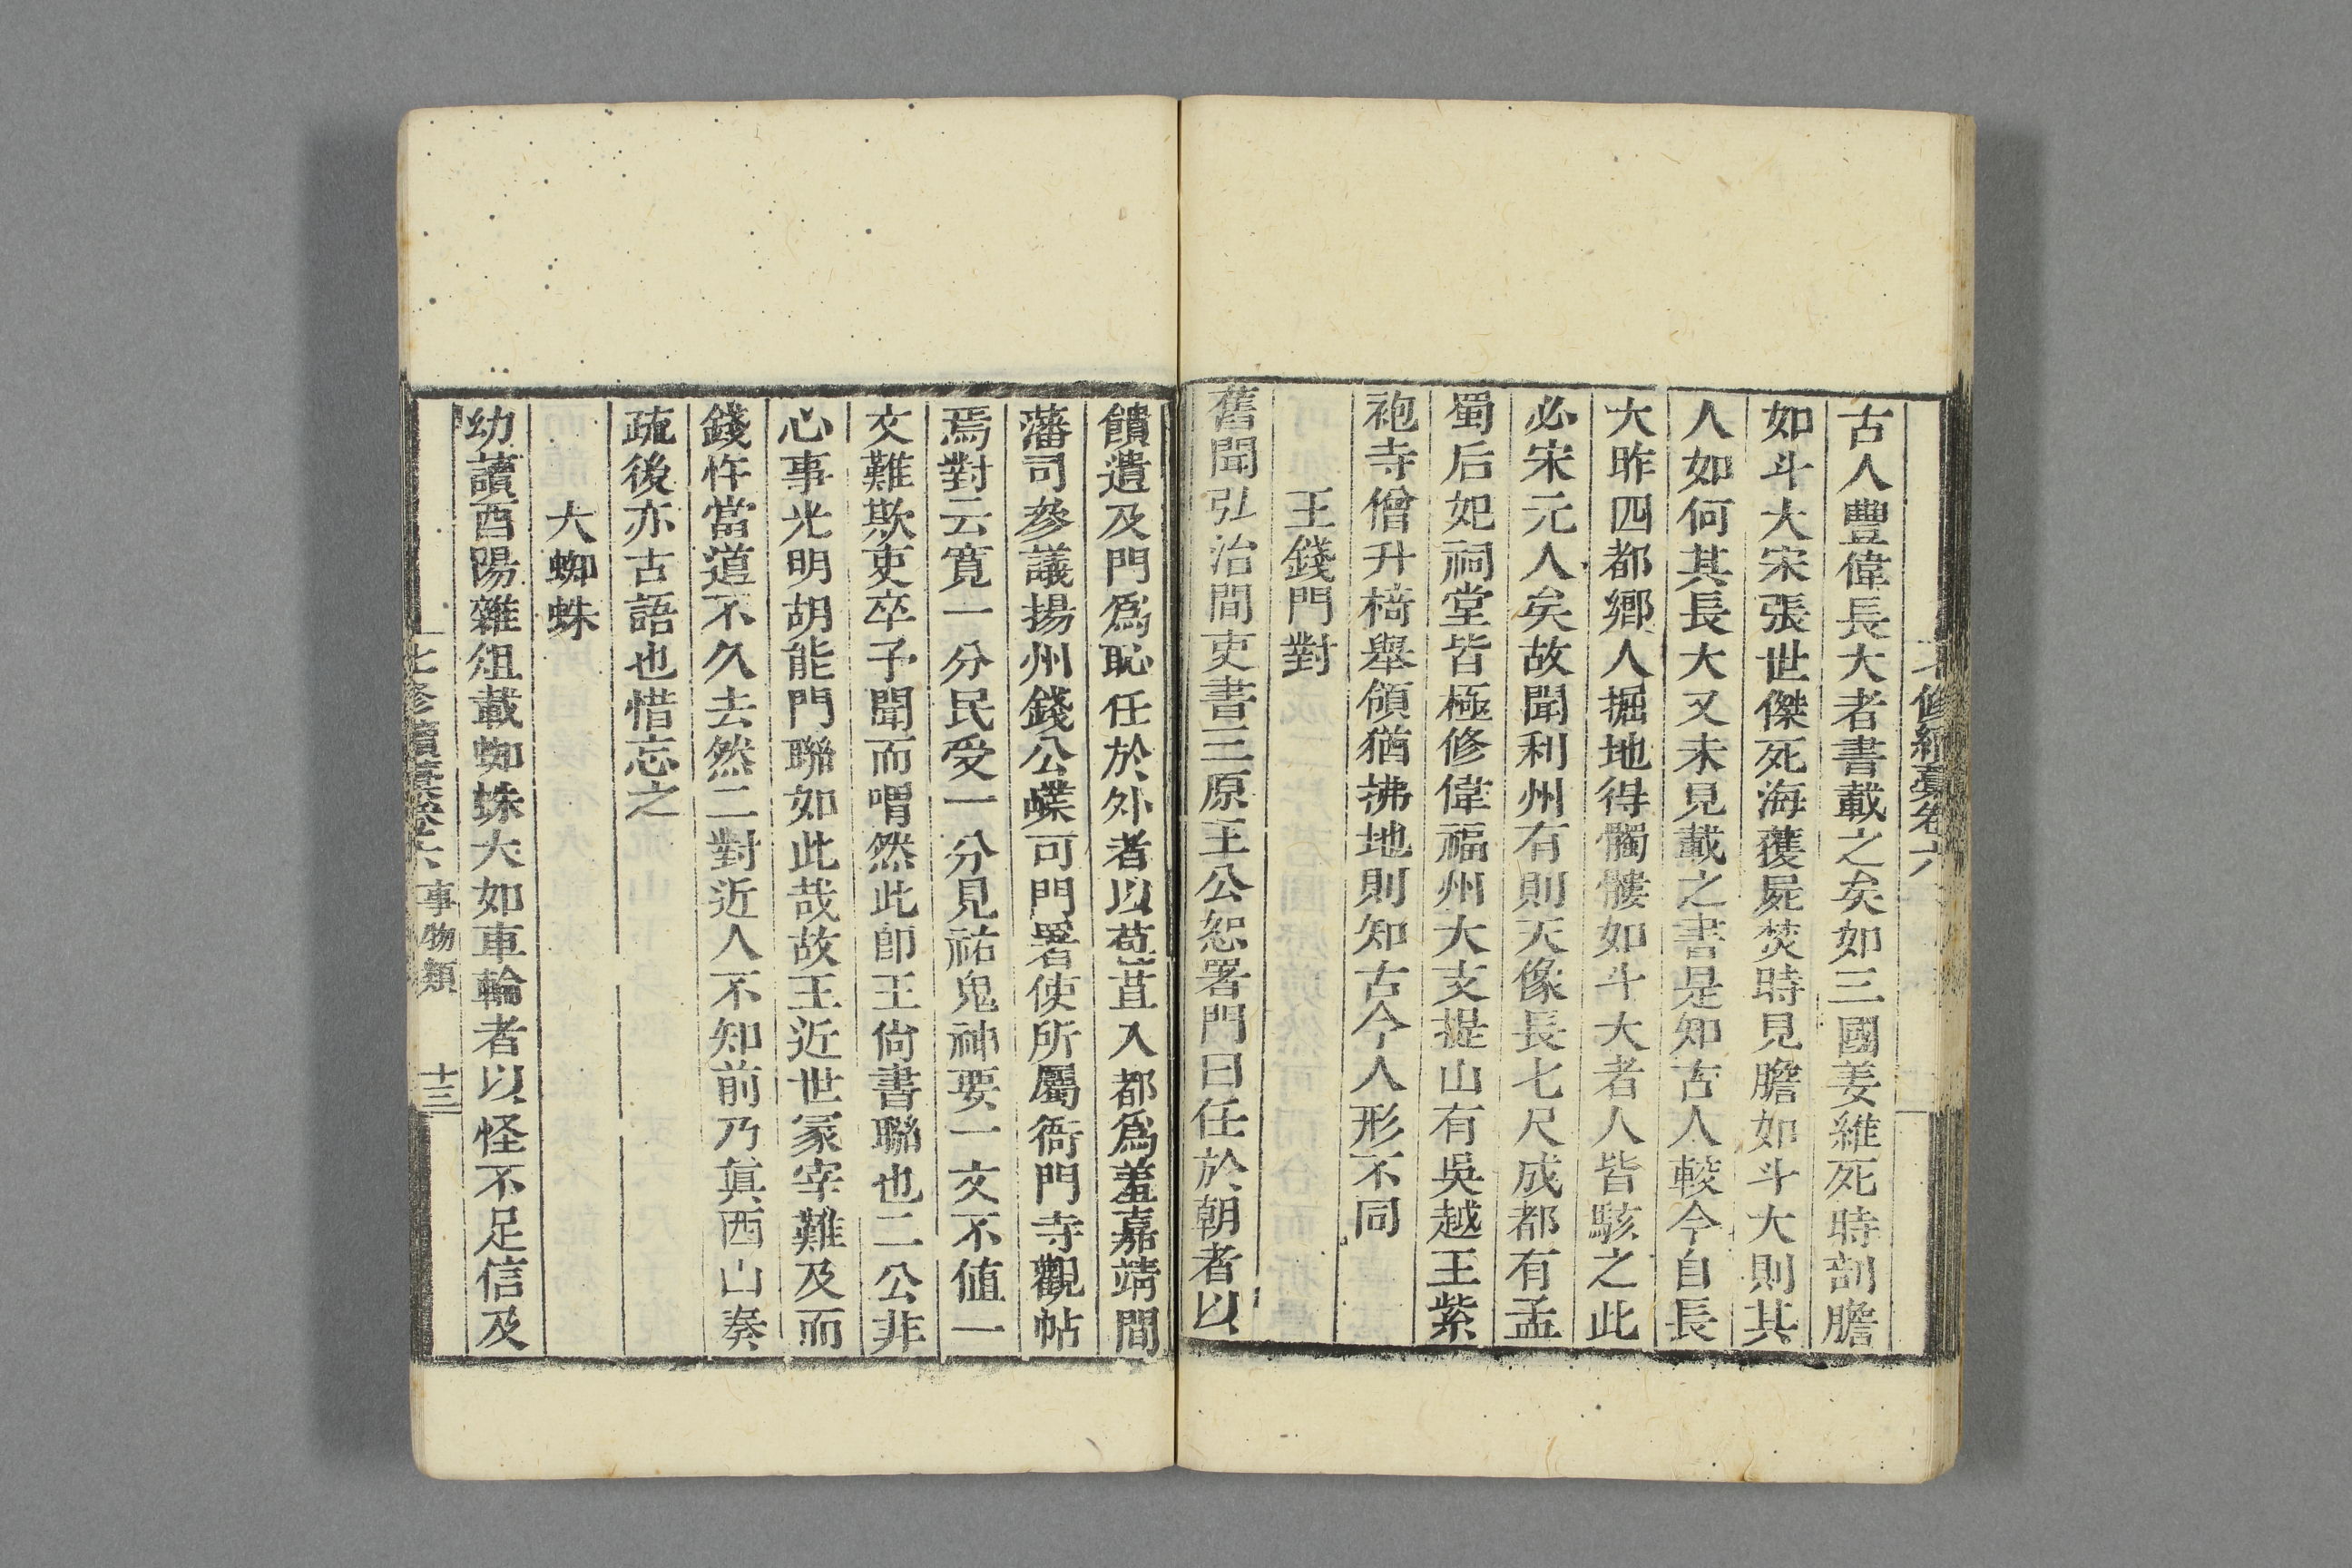 七修續藁卷六
古人豐偉長大者書載之矣如三國姜維死時剖膽
如斗大宋張世傑死海獲屍焚時見膽如斗大則其
人如何其長大又未見載之書是知古人較今自長
大昨四都鄉人掘地得髑髏如斗大者人皆駭之此
必宋元人矣故聞利州有則天像長七尺成都有孟
蜀后妃祠堂皆極修偉福州大支提山有吳越王紫
袍寺僧升椅舉領猶拂地則知古今人形不同
王錢門對
舊聞弘治間吏書三原王公恕署門曰任於朝者以
饋遺及門爲恥任於外者以苞苴入都爲羞嘉靖間
藩司參議揚州錢公嶫可門署使所屬衙門寺觀帖
焉對云寬一分民受一分見祐鬼神要一文不值一
文難欺吏卒予聞而喟然此卽王尙書聯也二公非
心事光明胡能門聯如此哉故王近世冢宰難及而
錢忤當道不久去然二對近人不知前乃眞西山奏
疏後亦古語也惜忘之
大蜘蛛
幼讀酉陽雜俎載蜘蛛大如車輪者以怪不足信及
七修續藁卷六 事物類 十三